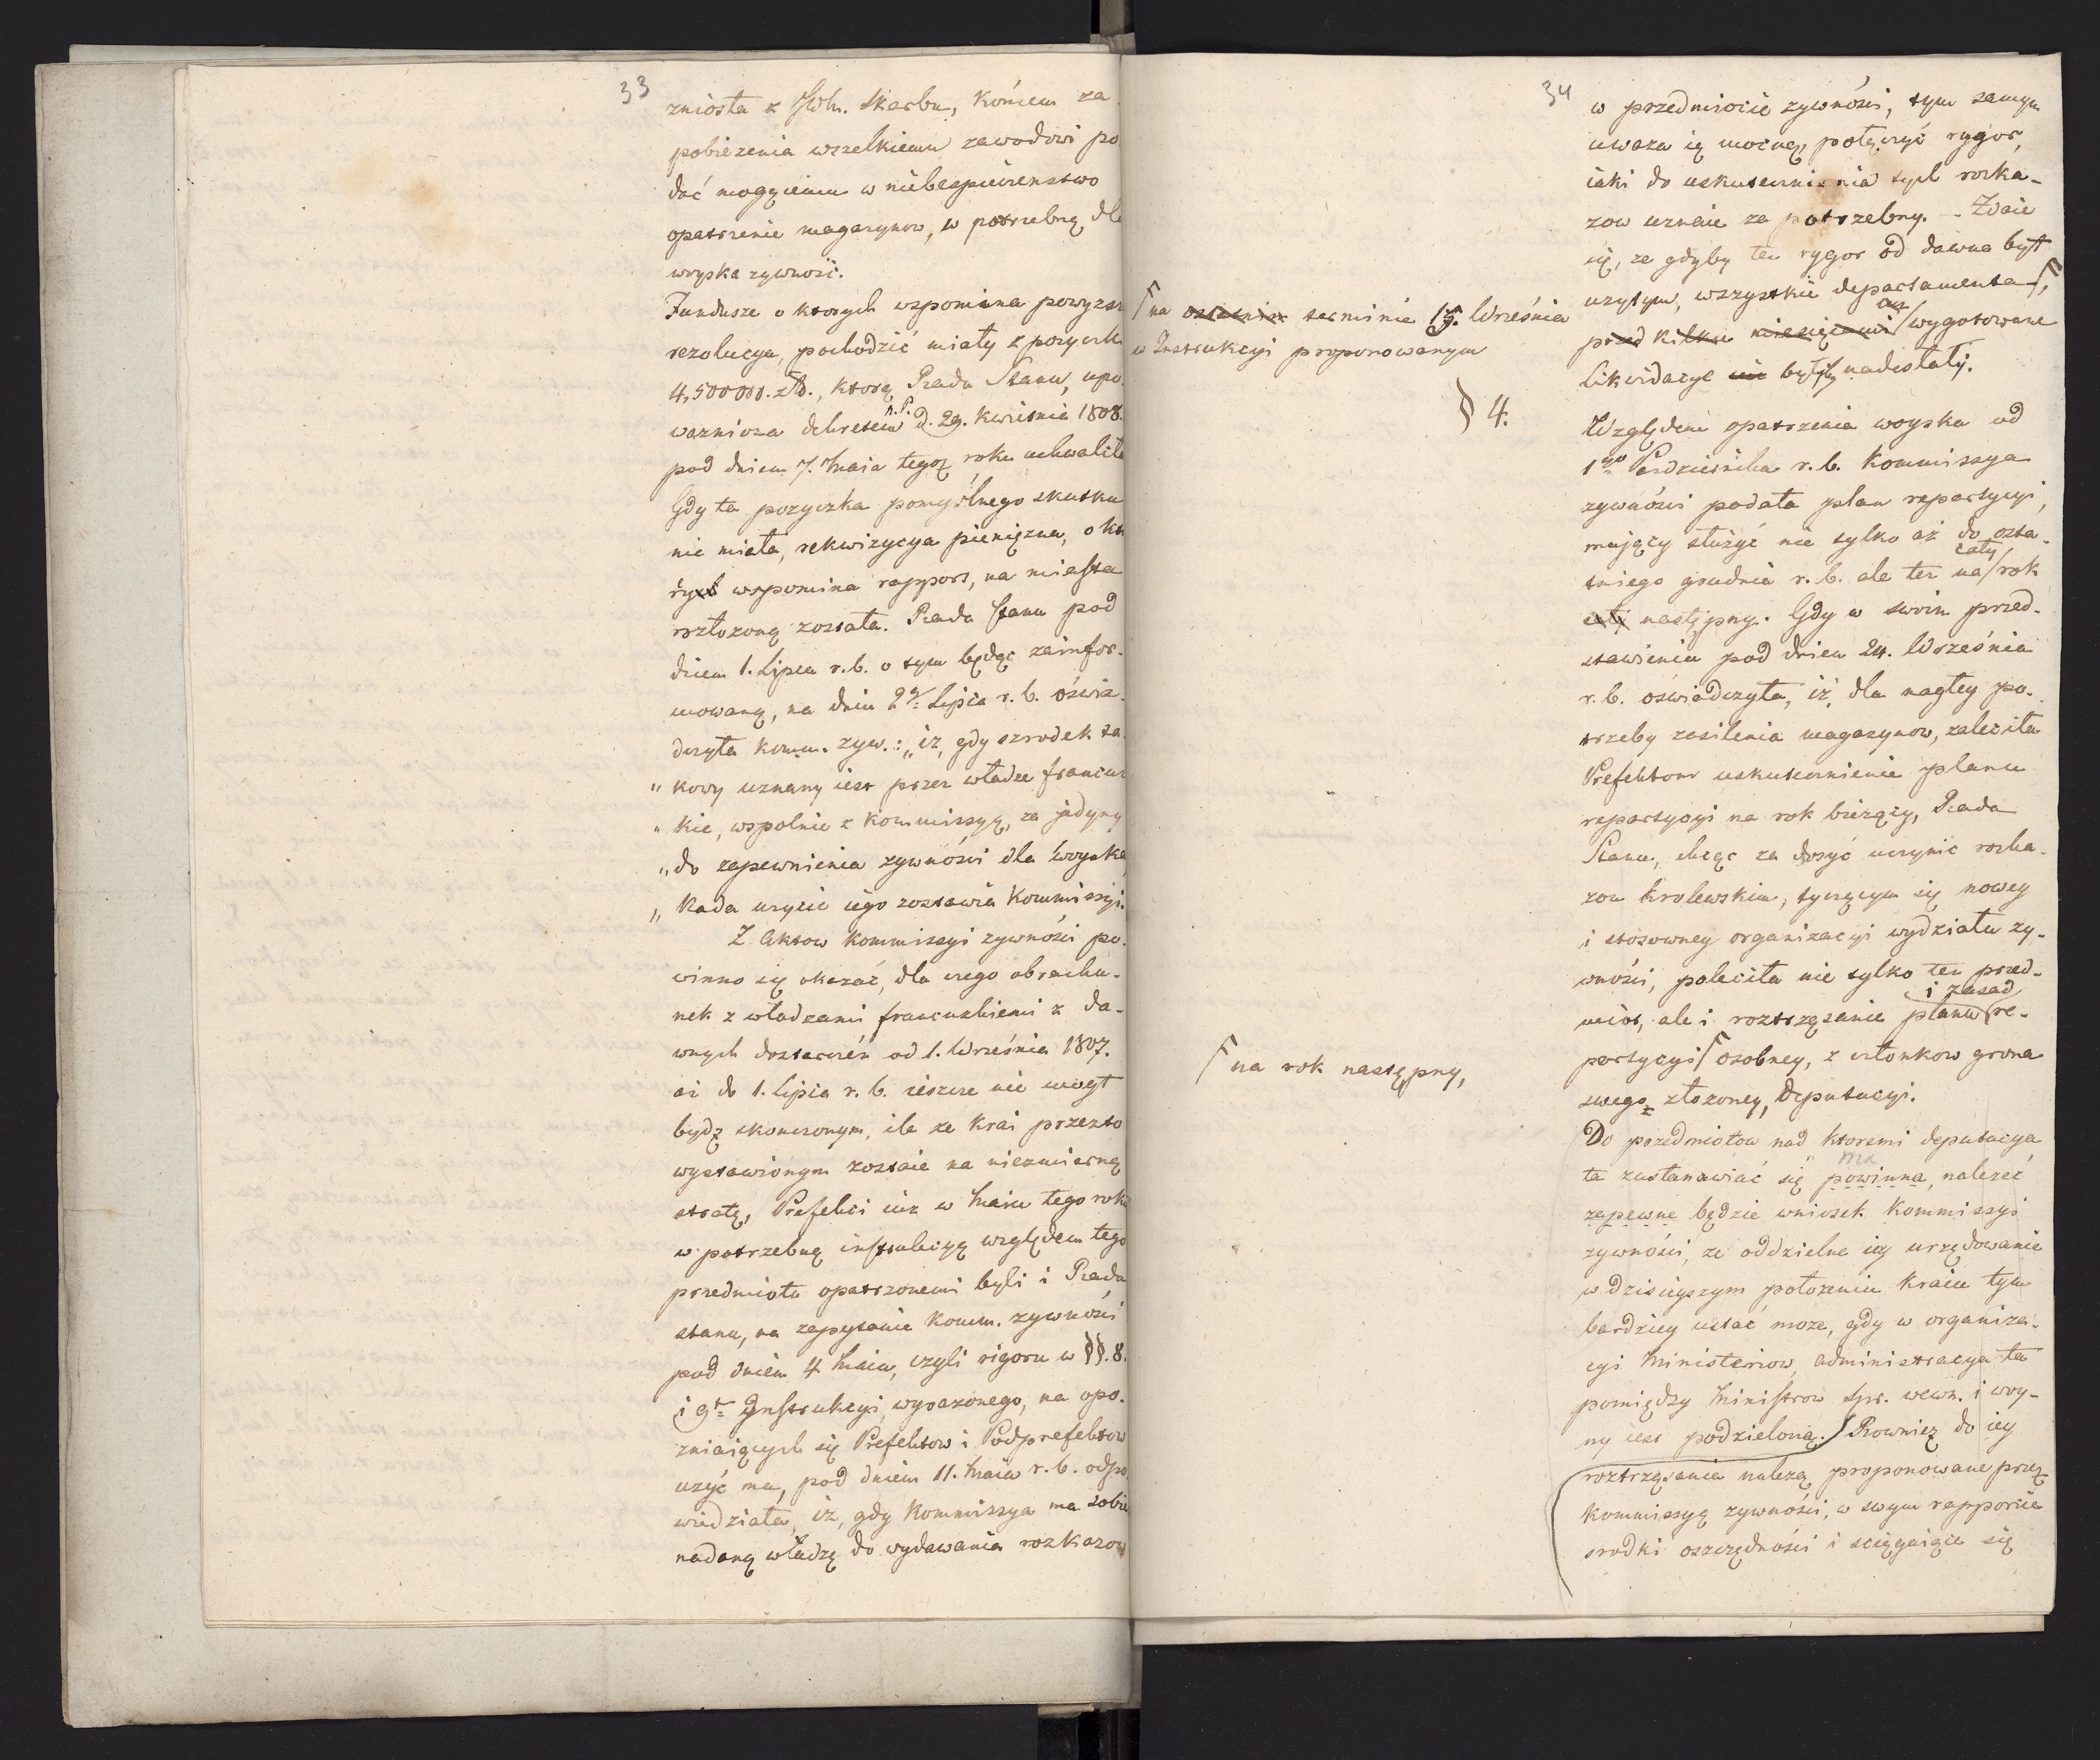 33
zniosła z JWM. Skarbu, końcem za-
pobieżenia wszelkiemu zawodowi po-
dać mogącemu w niebespieczenstwo
opatrzenie magazynow, w potrzebną dla
woyska zywność.
Fundusze o ktorych wspomina powyzsza
rezolucya, pochodzić miały z pozyczki
4,500000. złł., ktorą Rada Stanu, upo-
wazniona dekretem N.P. d. 29. Kwietnia 1808.
pod dniem 7. Maia tegoz roku uchwaliła
Gdy ta pozyczka pomyślnego skutku
nie miała, rekwizycya pieniężna, o kto
rych wspomina rapport, na miasta
rozłozoną została. Rada Stanu pod
dniem 1. Lipca r.b. o tym będąc zainfor-
mowaną, na dniu 2go Lipca r.b. oświa-
dczyła komm. zyw.: „iż, gdy szrodek ta-
„ kowy uznany iest przez władze francuz
„ kie, wspolnie z kommissyą, za jedyny
„ do zapewnienia zywności dla woyska,
„ Rada uzycie iego zostawia Kommissyi.
Z Aktow Kommissyi zywności po-
winno się okazać, dla czego obrachu-
nek z władzami francuzkiemi z da-
wnych dostarczeń od 1. Września 1807.
aż do 1. Lipca r.b. ieszcze nie mogł
bydź skonczonym, ile ze Krai przezto
wystawionym zostaie na niezmierną
stratę, Prefekci iuz w Maiu tego roku
w potrzebną instrukcyą względem tego
przedmiotu opatrzonemi byli i Rada
stanu, na zapytanie Komm. zywności
pod dniem 4 Maia, czyli rigoru w §§. 8.
i 9m Instrukcyi, wyrazonego, na opo-
zniaiących się Prefektow i Podprefektow
uzyć ma, pod dniem 11. Maia r.b. odpo
wiedziała, iż, gdy Kommissya ma sobie
nadaną władzę do wydawania rozkazow
34
w przedmiocie zywności, tym samym
uważa ią mocną, połączyć rygor,
iaki do uskutecznienia tych rozka-
zow uznaie za potrzebny. - Zdaie
się, ze gdyby ten rygor od dawna był
uzytym, wszystkie departamenta,
na ostatnim terminie 15. Września
w Instrukcyi proponowanym
przed kilku miesięcami wygotowane
Likwidacye nie byłyby nadesłały.
§ 4.
Względem opatrzenia woyska od
1go Pazdziernika r.b. Kommissya
zywności podała plan repartycyi,
mający służyć nie tylko aż do osta-
tniego grudnia r.b. ale tez na cały rok
cały następny. Gdy w swoim przed-
stawieniu pod dniem 24. Września
r.b. oświadczyła, iż, dla nagłey po-
trzeby zasilenia magazynow, zaleciła
Prefektom uskutecznienie planu
repartycyi na rok bieżący, Rada
Stanu, chcąc za dosyć uczynić rozka-
zom krolewskim, tyczącym się nowey
i stosowney organizacyi wydziału zy-
wności, poleciła nie tylko ten przed-
miot, ale i roztrząsanie planu i zasad re-
partycyi osobney, z członkow grona
na rok następny,
swego złozoney, Deputacyi.
Do przedmiotow nad ktoremi deputacya
ta zastanawiać się powinna, ma nalezeć
zapewne będzie wniosek Kommissyi
zywności, ze oddzielne iey urzędowanie
w dzisieyszym położeniu Kraiu tym
bardziey ustać moze, gdy w organiza-
cyi Ministeriow, administracya ta
pomiędzy Ministrow Spr. wewn. i woy-
ny iest podzieloną. Rownież do iey
roztrząsania nalezą proponowane przez
Kommissyą zywności, w swym rapporcie
srodki oszczędności i sciągaiące się